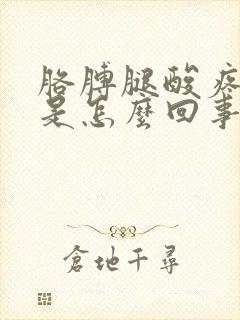 胳膊腿酸疼
是怎麽回事
倉地千尋